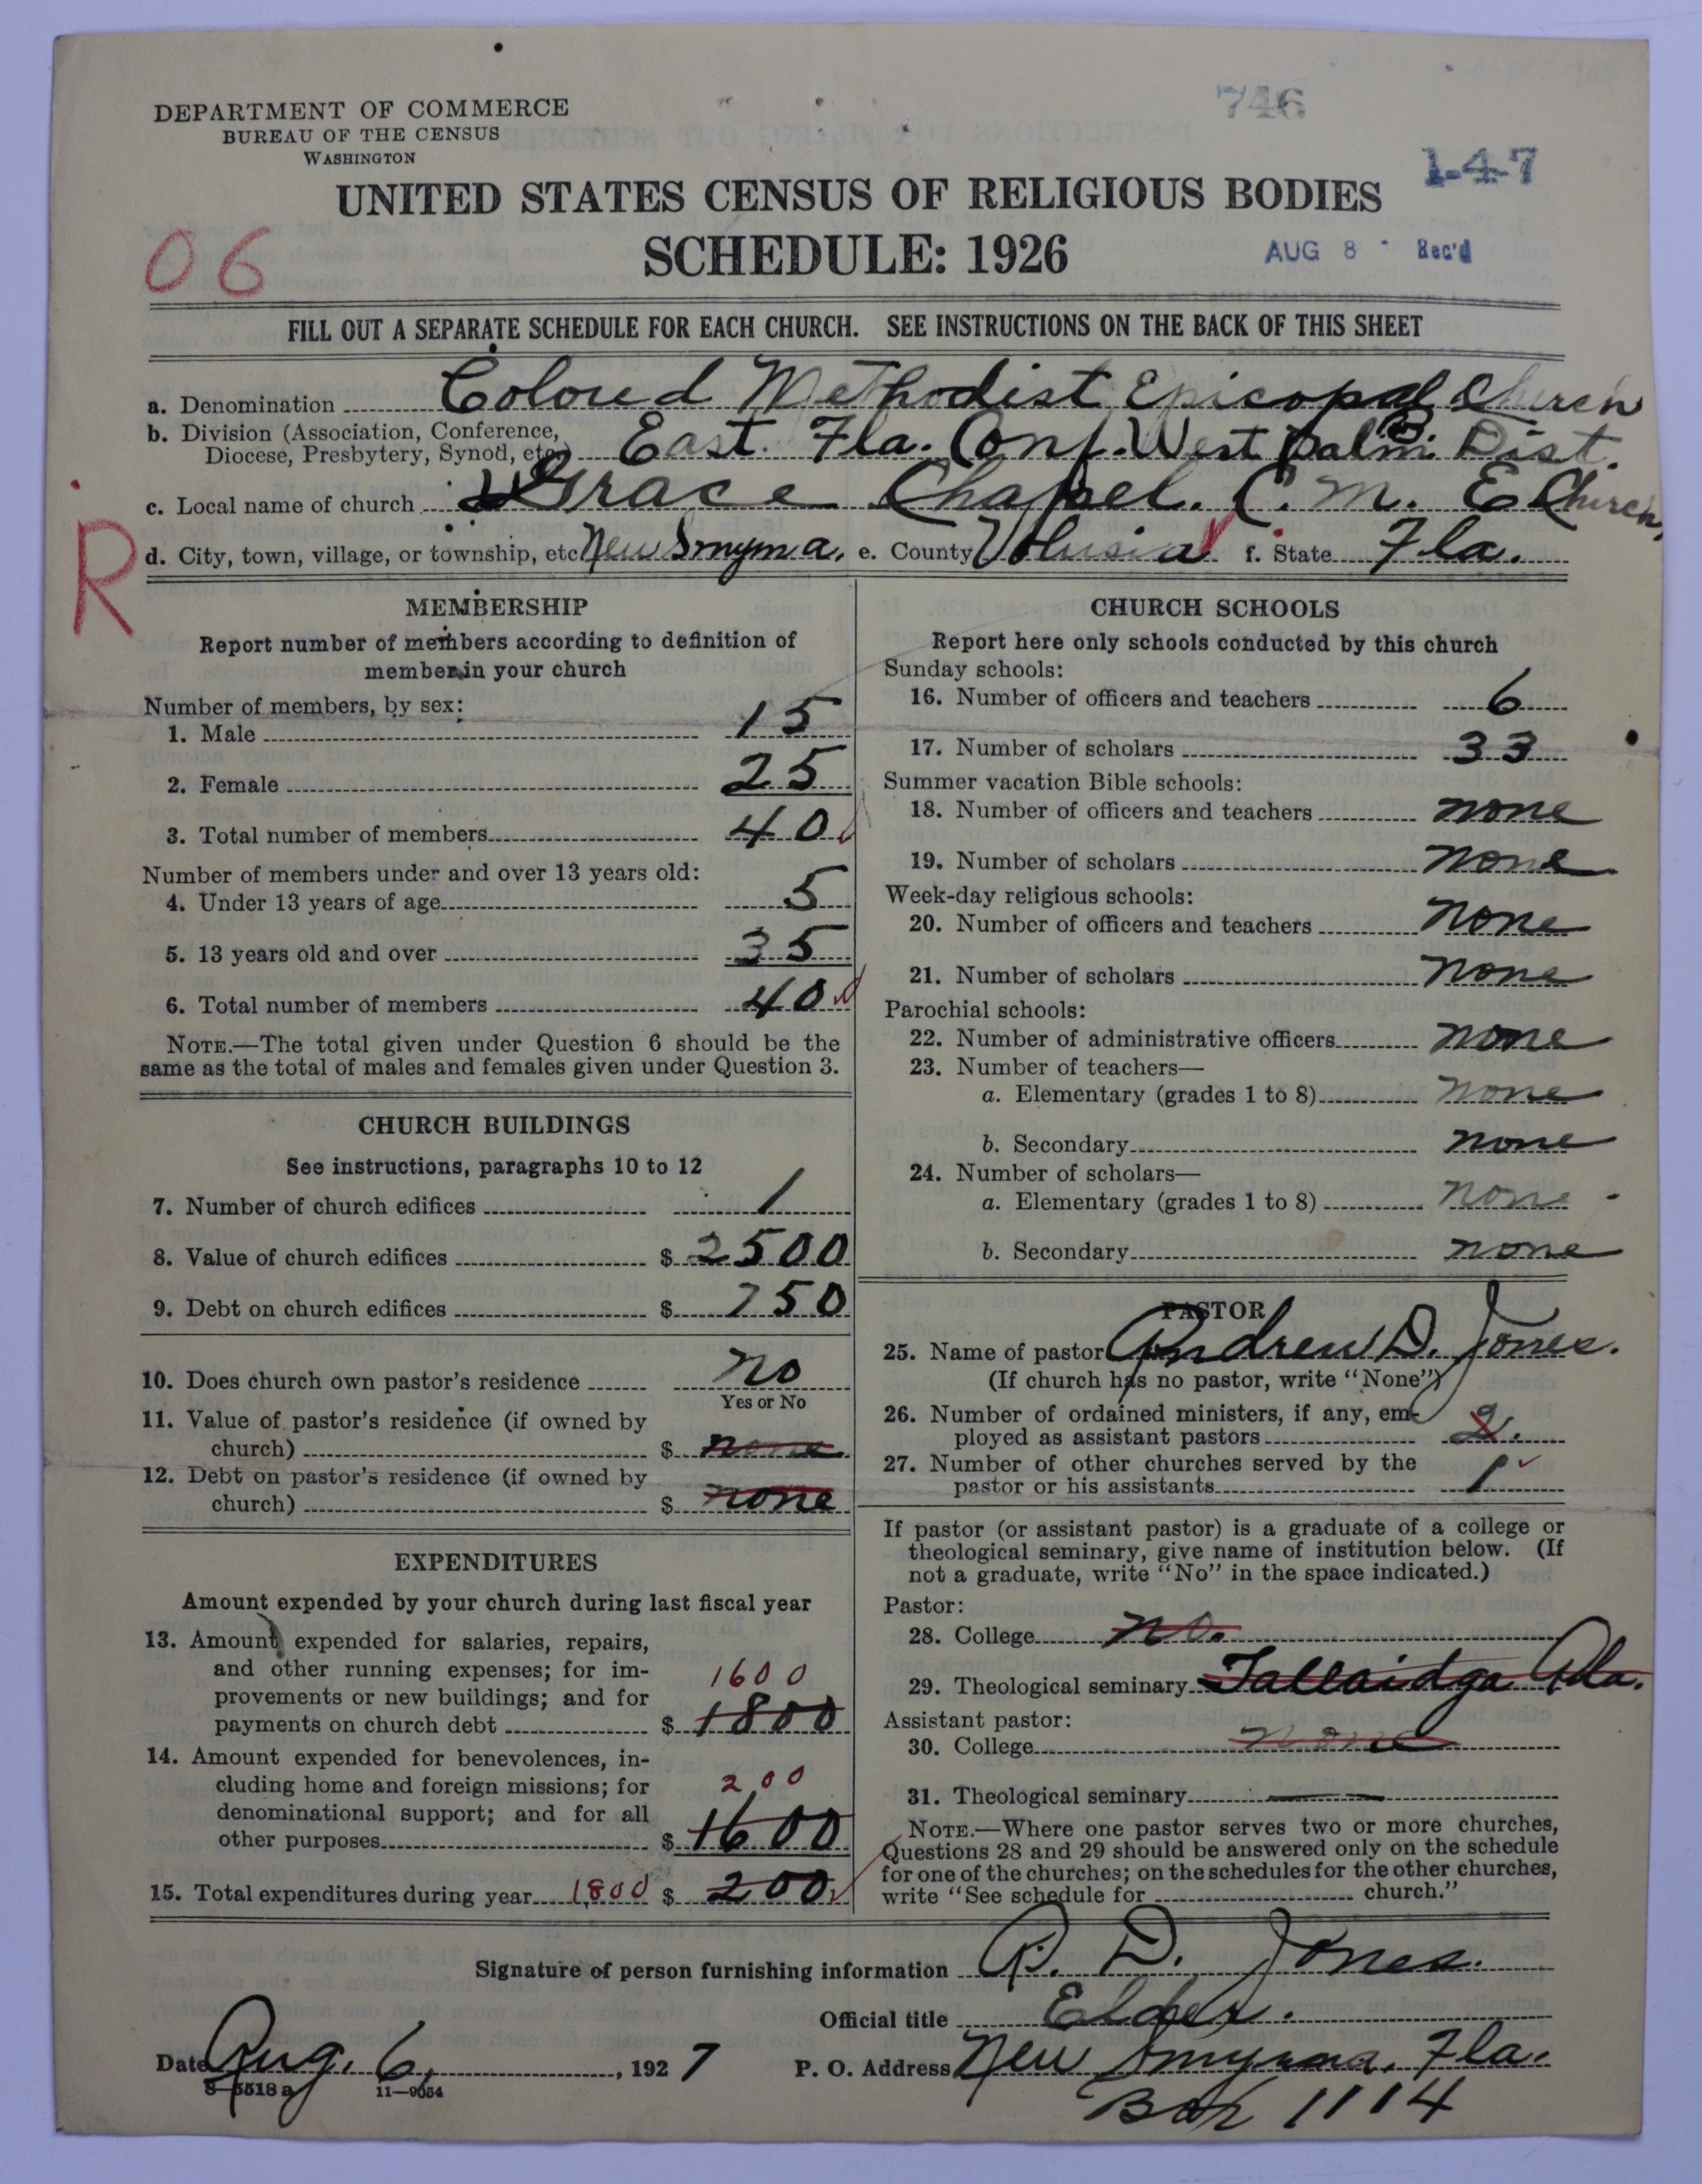 746
DEPARTMENT OF COMMERCE
BUREAU OF THE CENSUS
WASHINGTON
1-4-7
UNITED STATES CENSUS OF RELIGIOUS BODIES
SCHEDULE: 1926
06
AUG 8 Rec'd
FILL OUT A SEPARATE SCHEDULE FOR EACH CHURCH. SEE INSTRUCTIONS ON THE BACK OF THIS SHEET
a. Denomination Colored Methodist Episcopal Church
b. Division (Association, Conference, Diocese, Presbytery, Synod, etc.) East. Fla. Conf. West Palm Dist.
c. Local name of church Grace Chapel. C. M. E Church,
R
d. City, town, village, or township, etc New Smyrna, e. County Volusia f. State Fla.
MEMBERSHIP
Report number of members according to definition of
member in your church
Number of members, by sex:
1. Male 15
2. Female 25
3. Total number of members 40
Number of members under and over 13 years old:
4. Under 13 years of age 5
5. 13 years old and over 35
6. Total number of members 40
NOTE.—The total given under Question 6 should be the
same as the total of males and females given under Question 3.
CHURCH BUILDINGS
See instructions, paragraphs 10 to 12
7. Number of church edifices 1
8. Value of church edifices $ 2500
9. Debt on church edifices $ 750
10. Does church own pastor's residence no
Yes or No
11. Value of pastor's residence (if owned by
church) $ none
12. Debt on pastor's residence (if owned by
church) $ none
EXPENDITURES
Amount expended by your church during last fiscal year
13. Amount expended for salaries, repairs,
and other running expenses; for im-
provements or new buildings; and for 1600
payments on church debt $ 1800
14. Amount expended for benevolences, in-
cluding home and foreign missions; for 200
denominational support; and for all
other purposes $ 1600
15. Total expenditures during year 1800 $ 200
CHURCH SCHOOLS
Report here only schools conducted by this church
Sunday schools:
16. Number of officers and teachers 6
17. Number of scholars 33
Summer vacation Bible schools:
18. Number of officers and teachers none
19. Number of scholars none
Week-day religious schools:
20. Number of officers and teachers none
21. Number of scholars none
Parochial schools:
22. Number of administrative officers none
23. Number of teachers—
a. Elementary (grades 1 to 8) none
b. Secondary none
24. Number of scholars—
a. Elementary (grades 1 to 8) none
b. Secondary none
PASTOR
25. Name of pastor Andrew D. Jones.
(If church has no pastor, write "None")
26. Number of ordained ministers, if any, em-
ployed as assistant pastors 2.
27. Number of other churches served by the
pastor or his assistants 1
If pastor (or assistant pastor) is a graduate of a college or
theological seminary, give name of institution below. (If
not a graduate, write "No" in the space indicated.)
Pastor:
28. College no.
29. Theological seminary Tallaidga Ala.
Assistant pastor:
30. College none
31. Theological seminary —
NOTE.—Where one pastor serves two or more churches,
Questions 28 and 29 should be answered only on the schedule
for one of the churches; on the schedules for the other churches,
write "See schedule for church."
Signature of person furnishing information A. D. Jones.
Official title Elder.
Date Aug. 6, , 1927 P. O. Address New Smyrna, Fla.
8-5518 a 11-9054
Box 1114